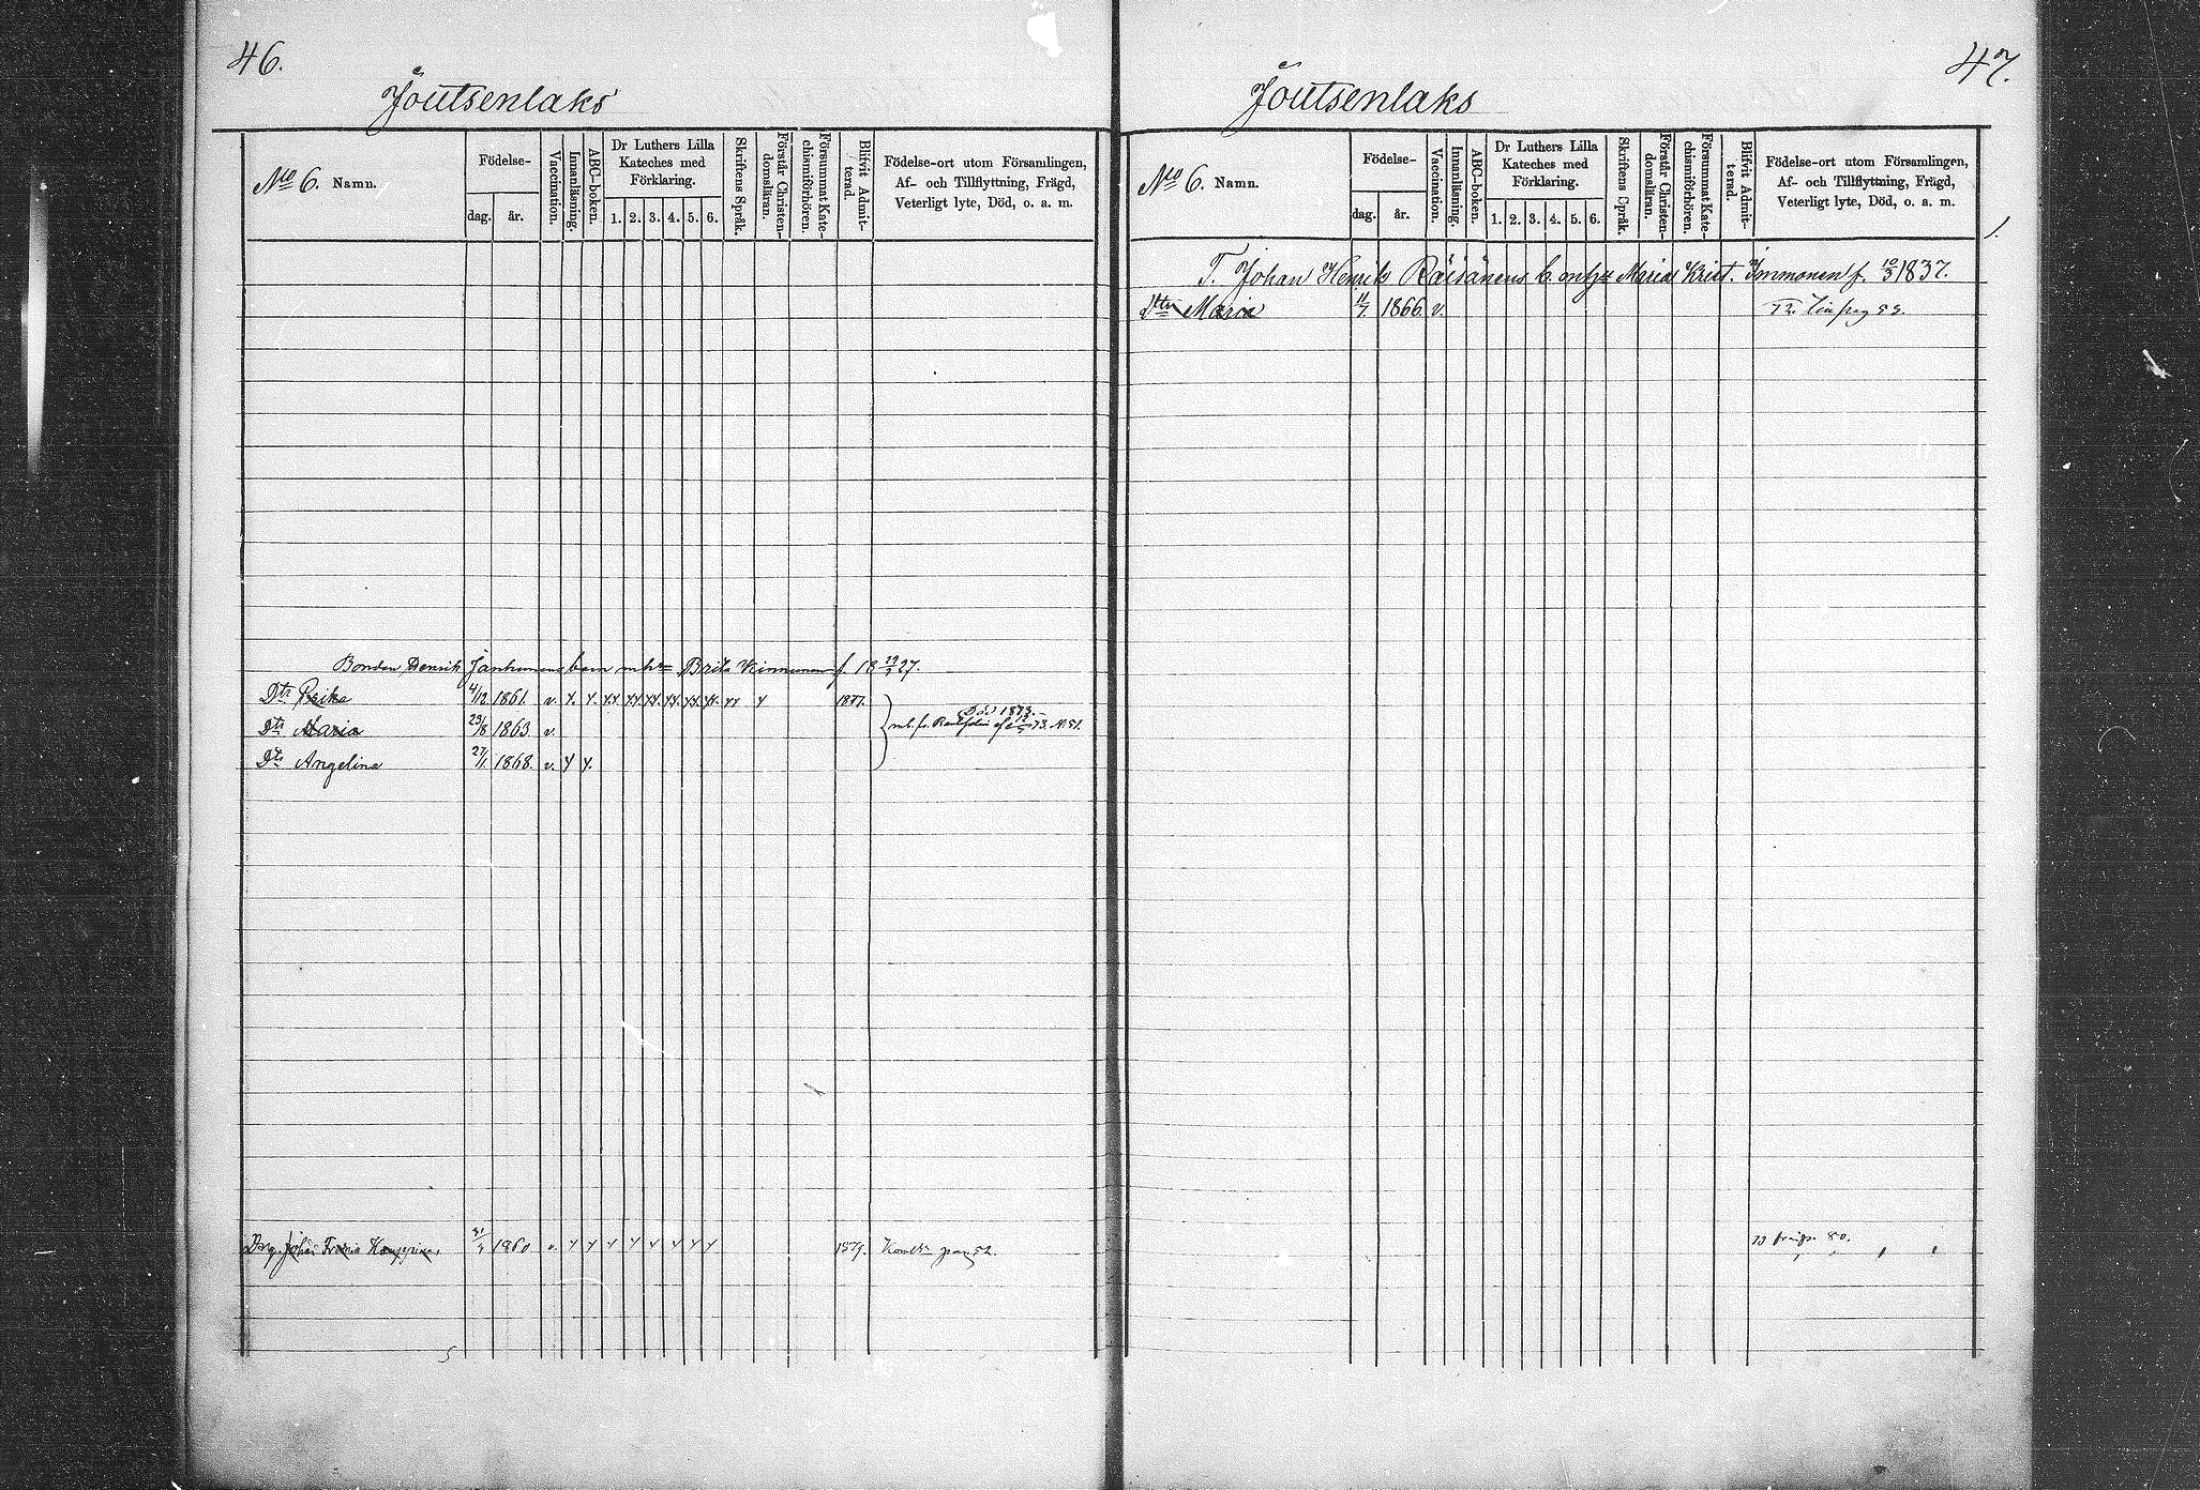 46.
Joutsenlaks
No 6. Namn.
Födelse-
dag. år.
Vaccination.
Innanläsning.
ABC-boken.
Dr Luthers Lilla Kateches med Förklaring.
1. 2. 3. 4. 5. 6.
Skriftens Språk.
Förstår Christen-domsläran.
Försummat Kate-chismiförhören.
Blifvit Admit-terad.
Födelse-ort utom Församlingen,
Af- och Tillflyttning, Frägd,
Veterligt lyte, Död, o. a. m.
Bonden Henrik Janhunens barn mh Brita Kinnunen f. 18 27.
Dtr 4/12 1861. v. 1877.
Död 1873.
Dtr Maria 29/8 1863 v.
Dtr Angelina 27/1 1868. v.
Johan 1860 v. 1879.
47.
Joutsenlaks
No 6. Namn.
Födelse-
dag. år.
Vaccination.
Innanläsning.
ABC-boken.
Dr Luthers Lilla
Kateches med
Förklaring.
1. 2. 3. 4. 5. 6.
Skriftens Språk.
Förstår Christen-domsläran.
Försummat Kate-chismiförhören.
Blifvit Admit-terad.
Födelse-ort utom Församlingen,
Af- och Tillflyttning, Frägd,
Veterligt lyte, Död, o. a. m.
T. Johan Henrik Räisänens b. Maria Krist. Immonen f. 10/3 1837.
Dtr Maria 11/7 1866 v.